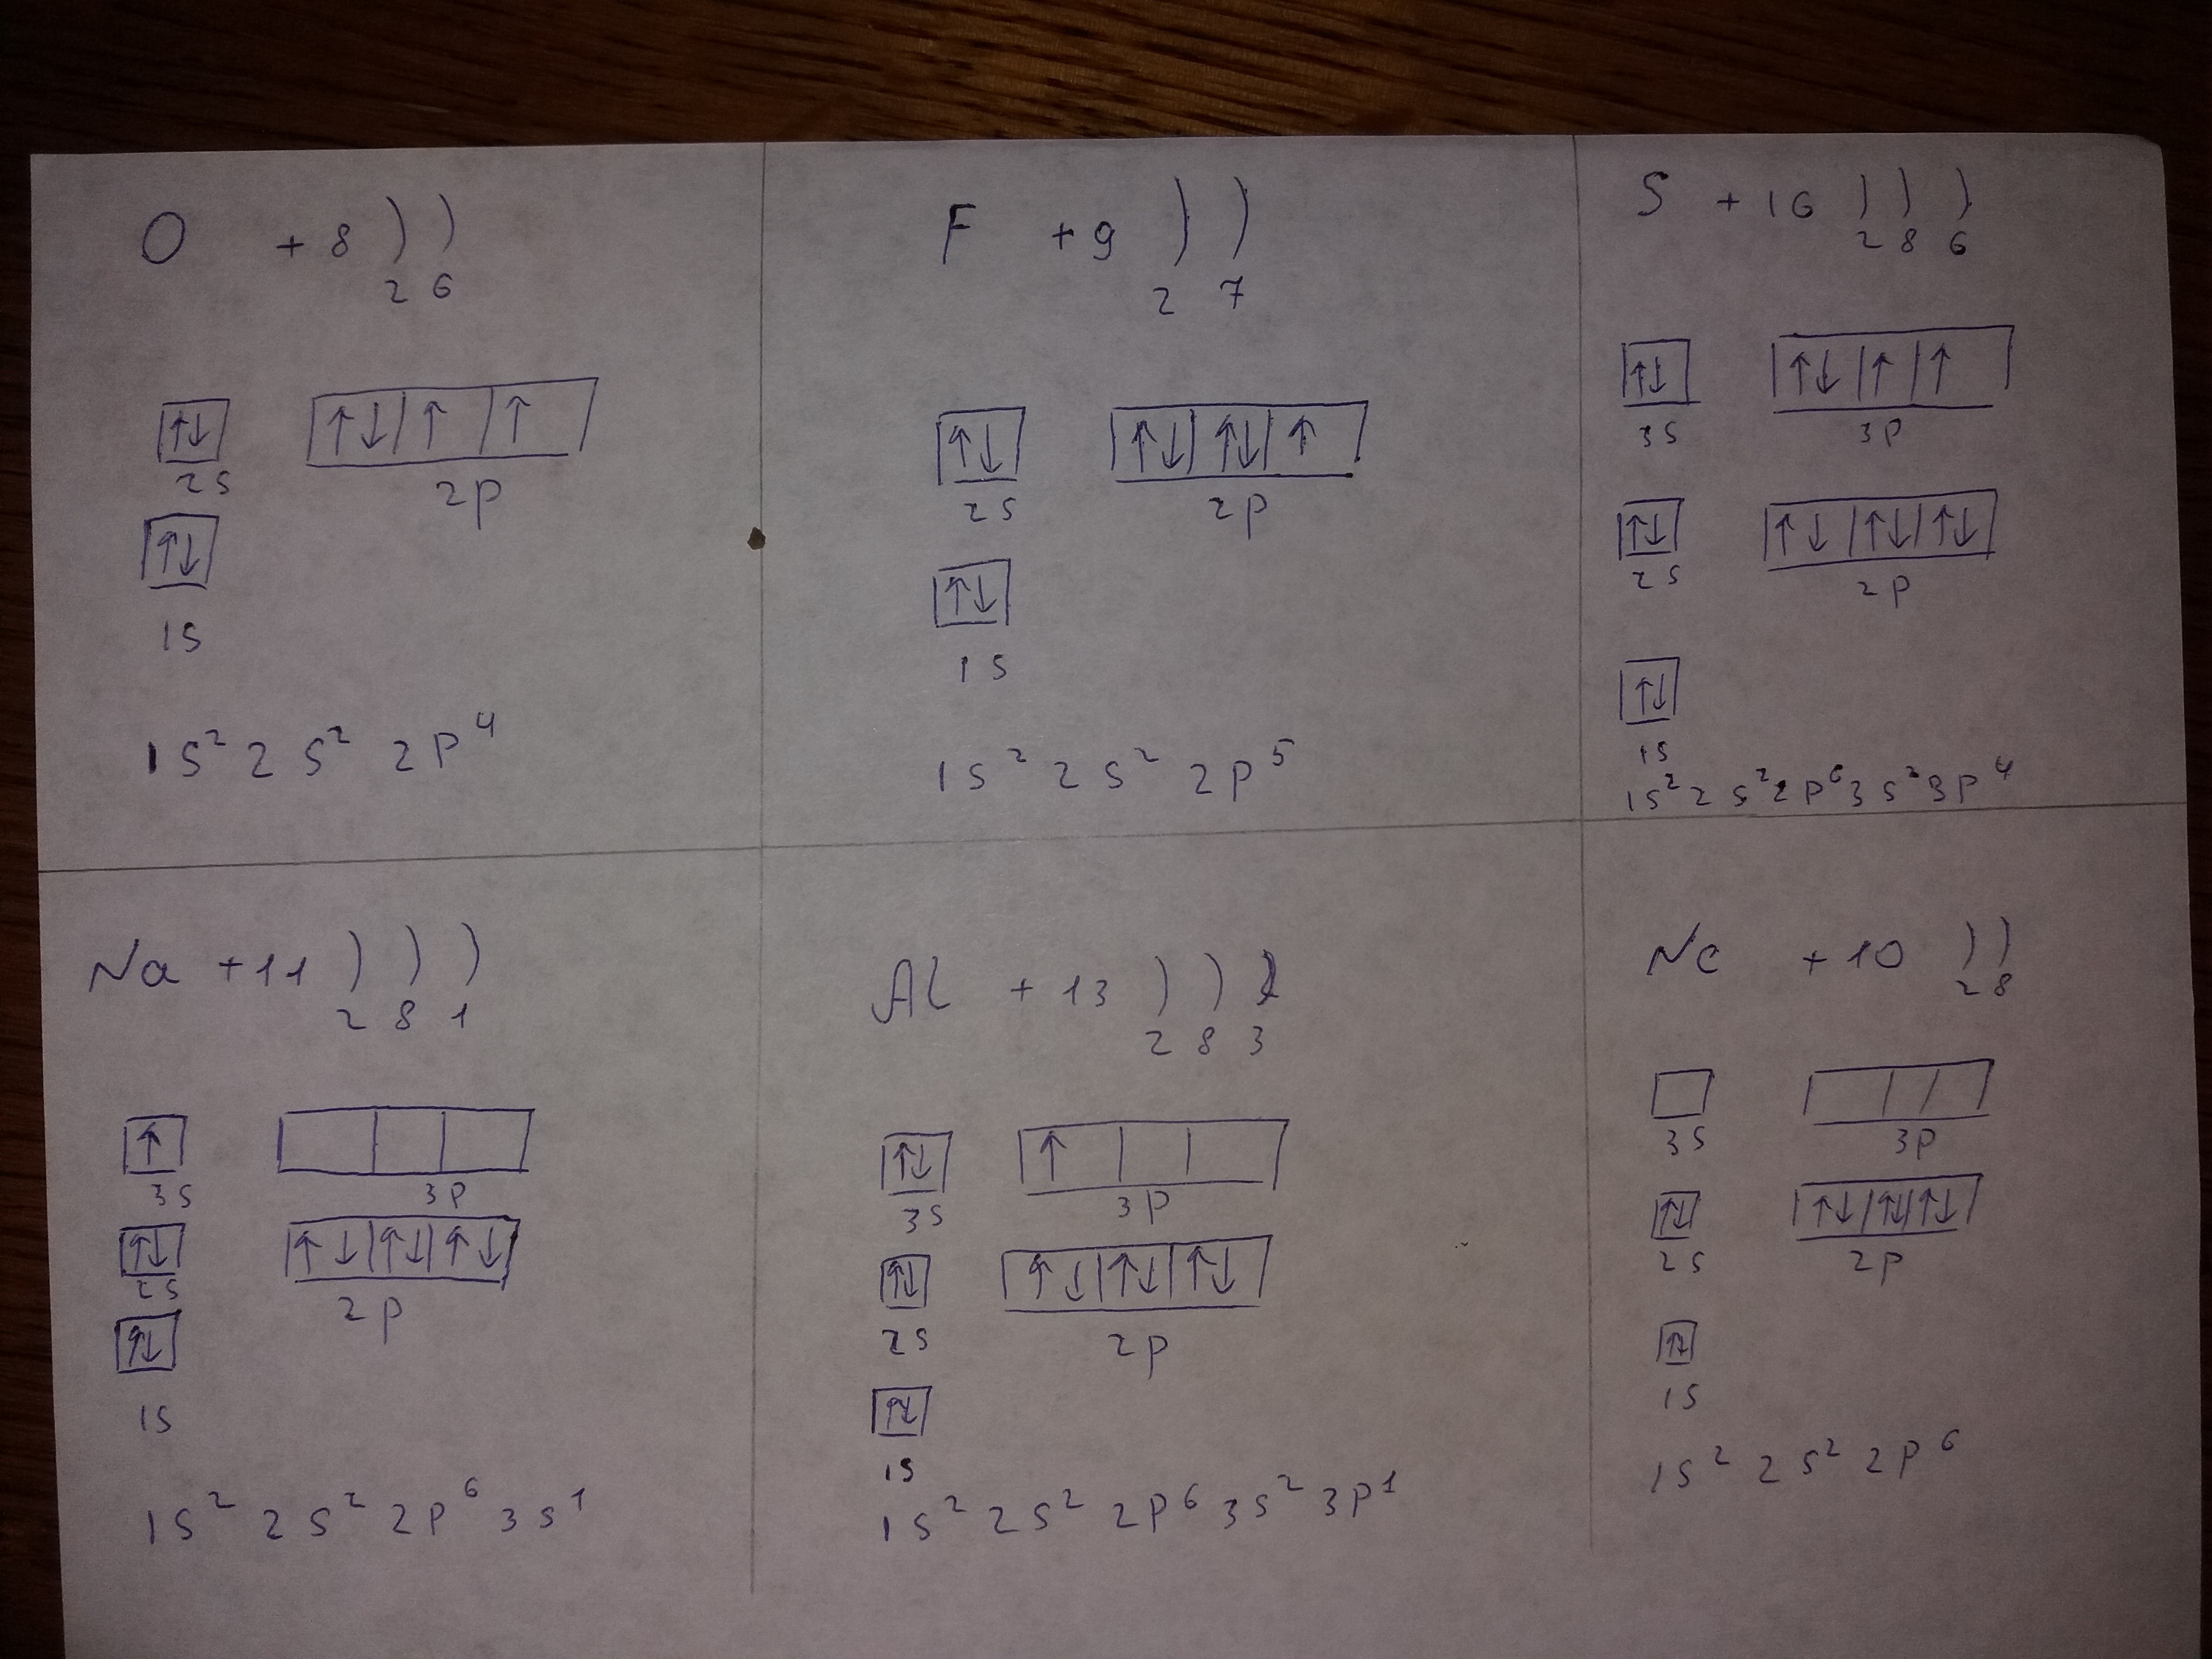 O +8 ) )
2 6
↑↓ ↑↓ ↑ ↑
2s 2p
↑↓
1s
1s² 2s² 2p⁴
F +9 ) )
2 7
↑↓ ↑↓ ↑↓ ↑
2s 2p
↑↓
1s
1s² 2s² 2p⁵
S +16 ) ) )
2 8 6
↑↓ ↑↓ ↑ ↑
3s 3p
↑↓ ↑↓ ↑↓ ↑↓
2s 2p
↑↓
1s
1s² 2s² 2p⁶ 3s² 3p⁴
Na +11 ) ) )
2 8 1
↑
3s 3p
↑↓ ↑↓ ↑↓ ↑↓
2s 2p
↑↓
1s
1s² 2s² 2p⁶ 3s¹
Al +13 ) ) )
2 8 3
↑↓ ↑
3s 3p
↑↓ ↑↓ ↑↓ ↑↓
2s 2p
↑↓
1s
1s² 2s² 2p⁶ 3s² 3p¹
Ne +10 ) )
2 8
3s 3p
↑↓ ↑↓ ↑↓ ↑↓
2s 2p
↑↓
1s
1s² 2s² 2p⁶